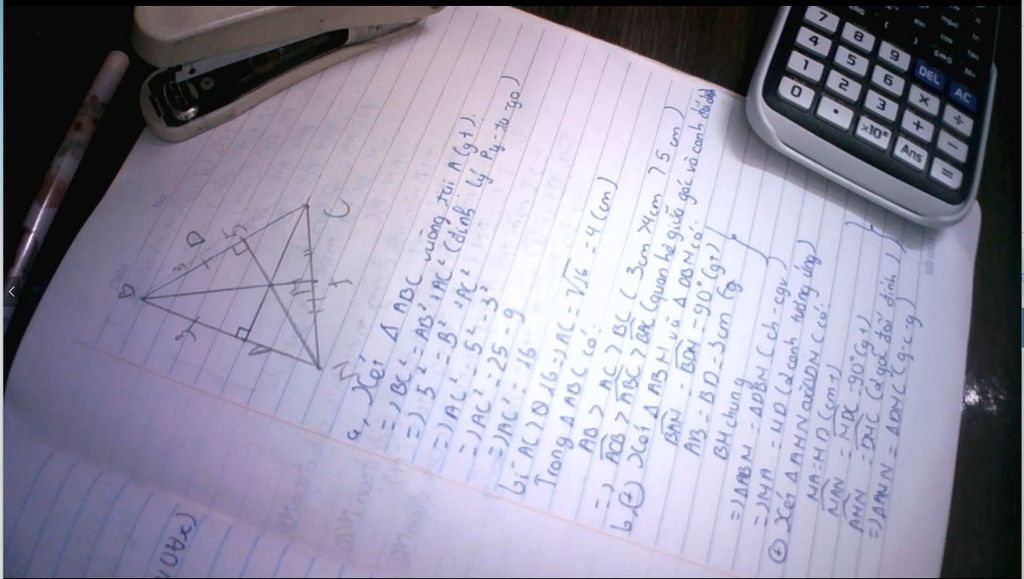 B
3
D
3
5
A
M
C
N
a, Xét Δ ABC vuông tại A (gt):
=) BC² = AB² + AC² (định lý Py-ta-go)
=) 5² = 3² + AC²
=) AC² = 5² - 3²
=) AC² = 25 - 9
=) AC² = 16
Vì AC > 0
=) AC = √16 = 4 (cm)
Trong Δ ABC có:
AB > AC > BC ( 3cm > 4cm > 5cm)
=) ACB > ABC > BAC (quan hệ giữa góc và cạnh đối
b, (+) Xét Δ ABM và Δ DBM có:
BAM = BDM = 90° (gt)
AB = BD = 3cm (gt)
BM chung
=) ΔABM = ΔDBM (ch - cgv)
=) MA = MD (2 cạnh tương ứng)
(+) Xét ΔAMN và ΔDMC có:
MA = MD (cmt)
MAN = MDC = 90° (gt)
AMN = DMC (2 góc đối đỉnh)
=) ΔAMN = ΔDMC (g-c-g)
7
8
9
DEL
AC
4
5
6
×
÷
1
2
3
+
−
0
•
×10ˣ
Ans
=